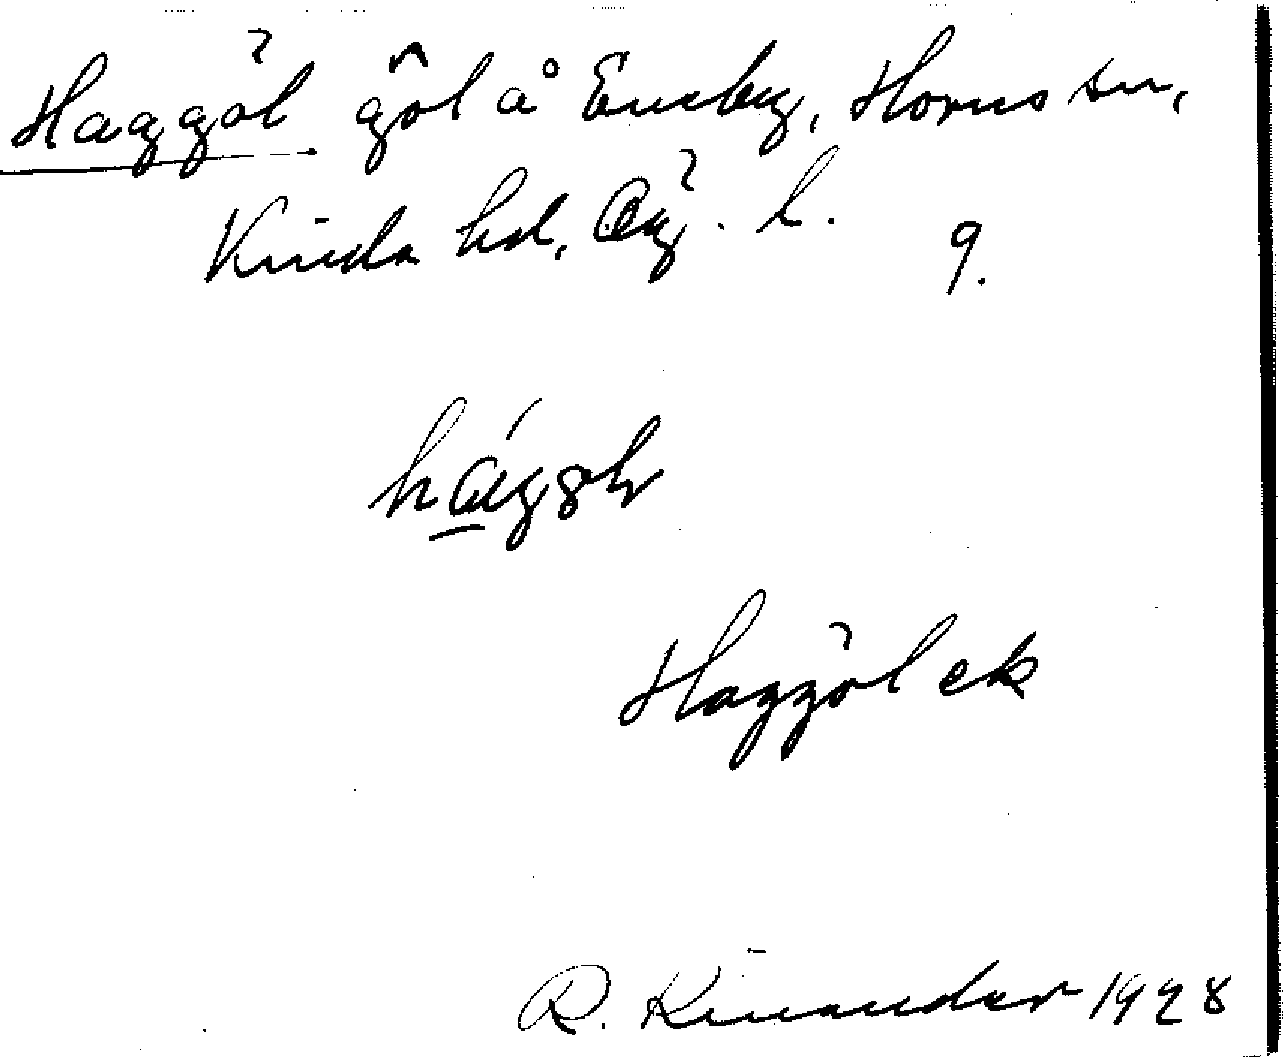 Haggöl göl å Eneby, Horns sn,
Kinda hd, Ög. l. 9.
Haggöl ek
R. Kinander 1928